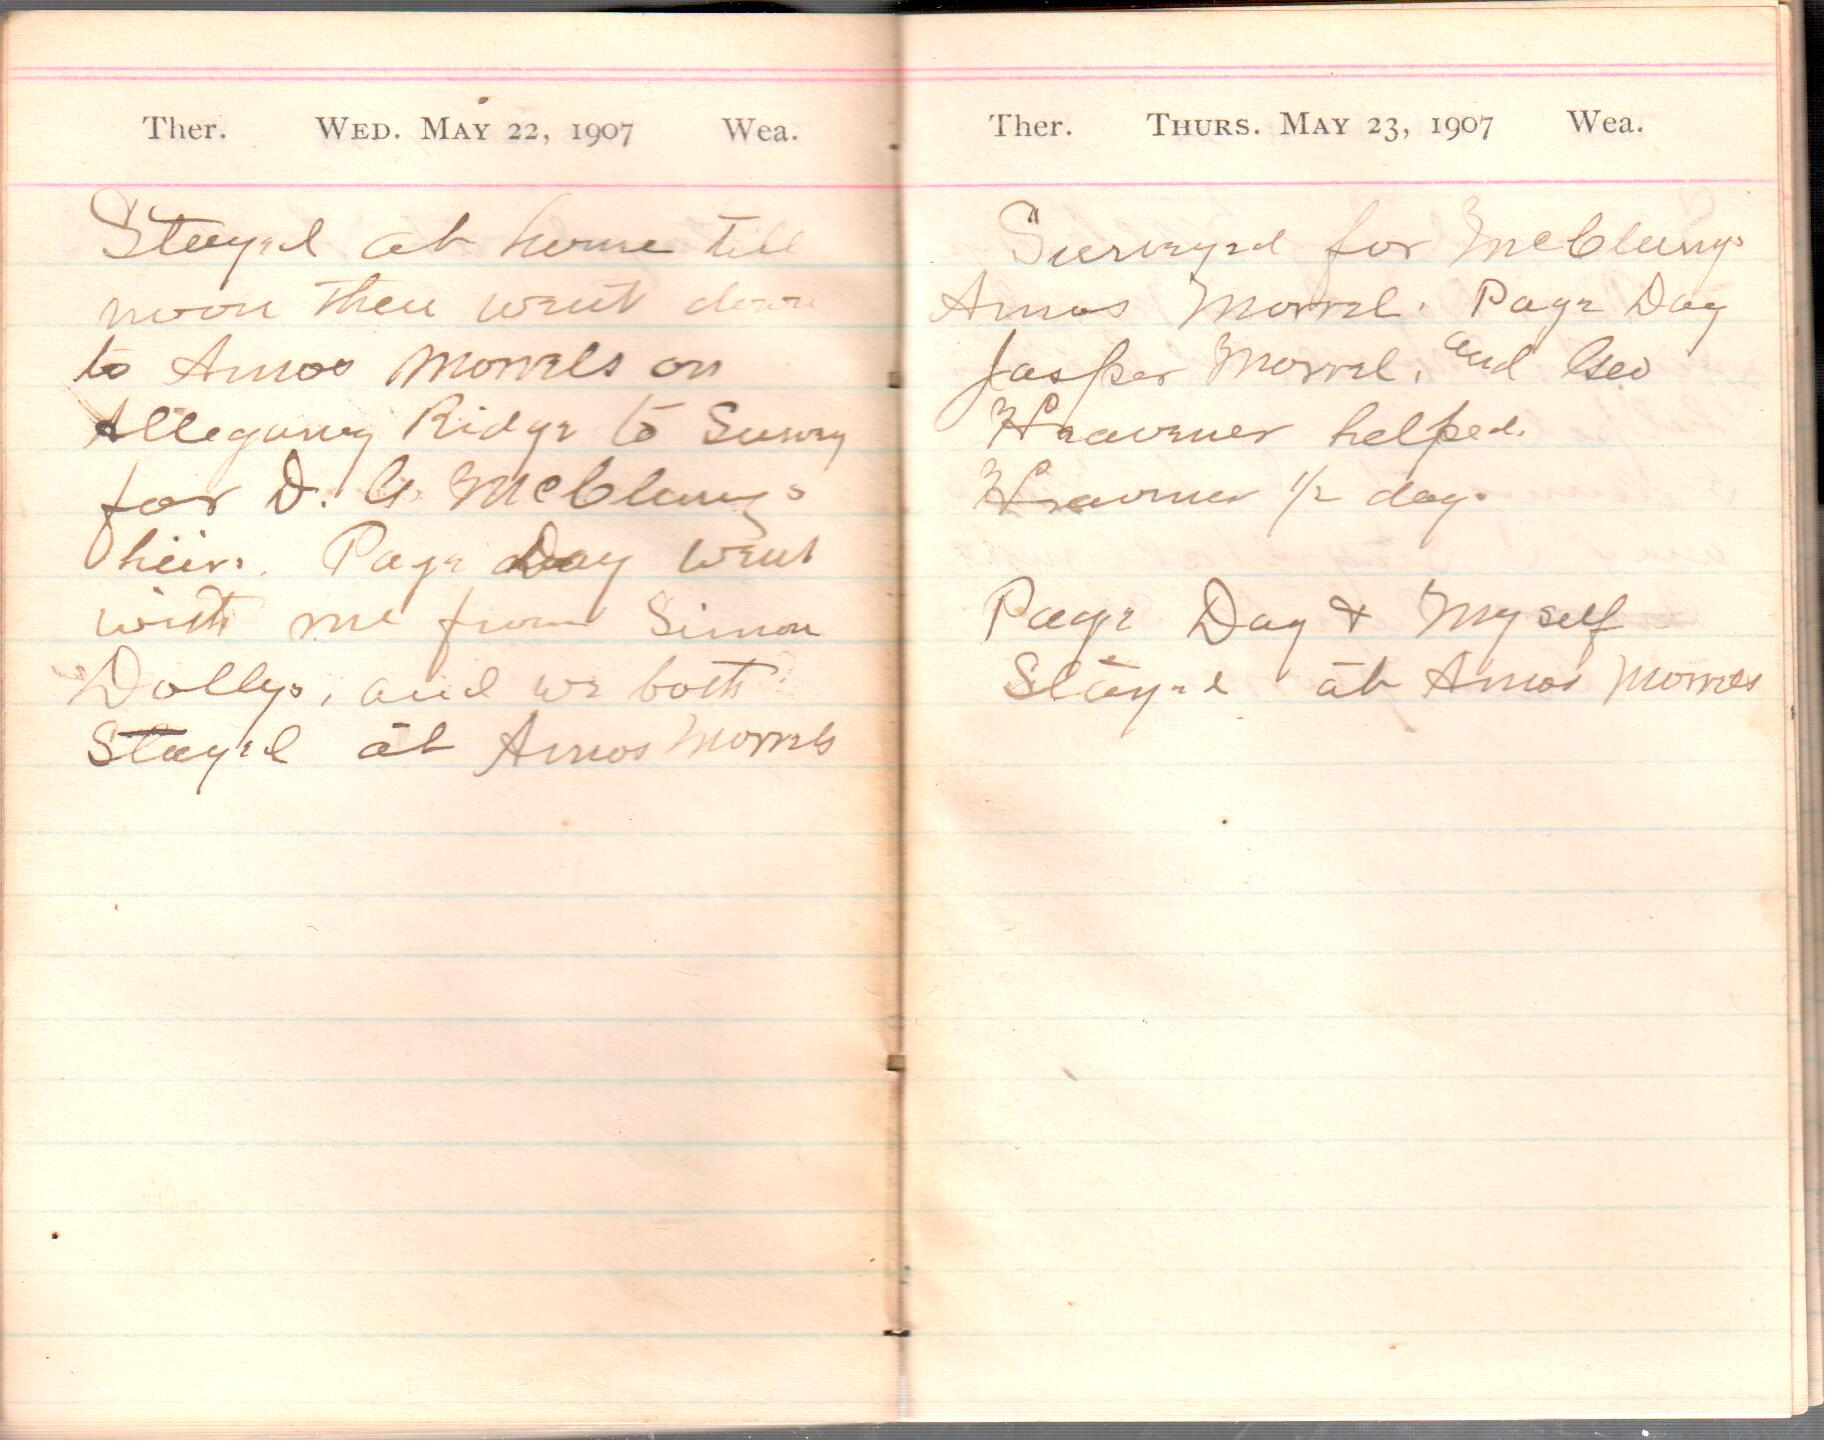 Ther. WED. MAY 22, 1907 Wea.
Stayed at home till
noon then went down
to Amos Morrels on
Allegany Ridge to Survey
for D. G. McClungs
heirs. Page Day went
with me from Simon
Dollys, and we both
Stayed at Amos Morrels
Ther. THURS. MAY 23, 1907 Wea.
Surveyed for McClungs
Amos Morrel. Page Day
Jasper Morrel, and Geo
Heavener helped.
Heavener 1/2 day.
Page Day & Myself
Stayed at Amos Morrels